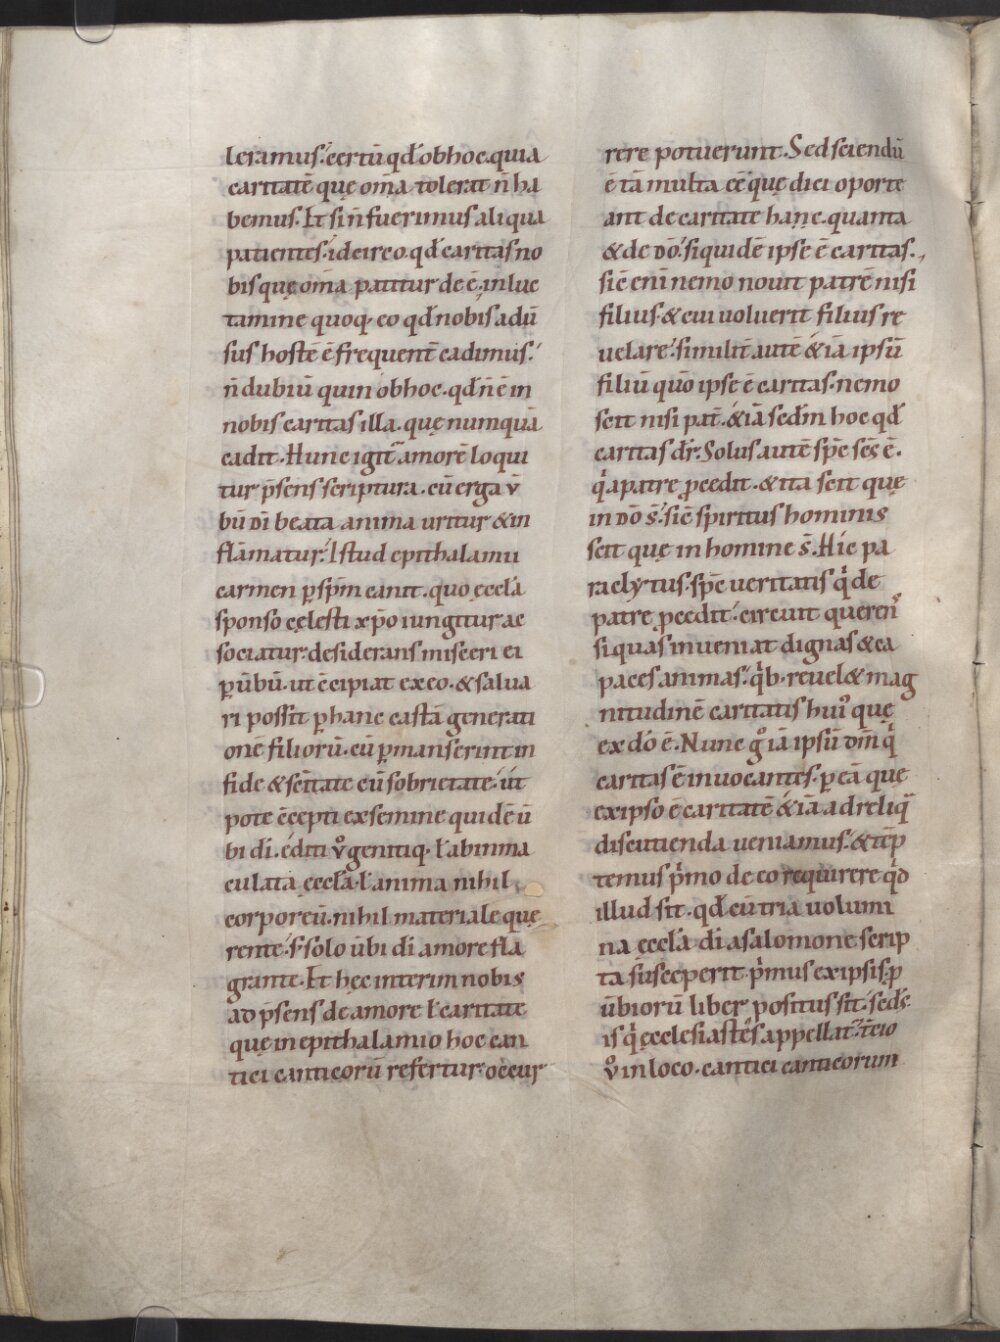 leramus. certū qđ ob hoc. quia
caritatē quę om̄a tolerat n̄ ha
bemus. Et si n̄ fuerimus aliqua
patientes. idcirco. qđ caritas no
bis quę om̄a patitur deē. in luc
tamine quoq. eo qđ nobis adū
sus hostē ē frequent̄ cadimus.
n̄ dubiū quin ob hoc. qđ n̄ ē in
nobis caritas illa. quę numquā
cadit. Hunc igit̄ amorē loqui
tur p̄sens scriptura. cū erga v̄
bū dī beata anima uritur & in
flāmatur. Istud epithalamii
carmen ꝑ sp̄m canit. quo ęccl̄a
sponso cęlesti xp̄o iungitur ac
sociatur. desiderans misceri ei
ꝑ ūbū. ut c̄cipiat ex eo. & salua
ri possit ꝑ hanc castā generati
onē filiorū. cū ꝑmanserint in
fide & sc̄itate cū sobrietate. ut
pote c̄cepti ex semine quidē ū
bi di. editi v̊ genitiq. ł ab inma
culata ęccl̄a. ł anima nihil
corporeū. nihil materiale quę
rente. s; solo ūbi di amore fla
grante. Et hęc interim nobis
ad p̄sens de amore ł caritate
quę in epithalamio hoc can
tici canticorū refertur. occur
rere potuerunt. Sed sciendū
ē tā multa eē quę dici oporte
ant de caritate hanc. quanta
& de dō. siquidē ipse ē caritas.
sic eni nemo nouit patrē nisi
filius. & cui uoluerit filius re
uelare. similit̄ autē & iā ipsū
filiū quō ipse ē caritas. nemo
scit nisi pat̄. & iā sedm hoc qđ
caritas dr̄. Solus autē sp̄c scs̄ ē.
q̇ a patre ꝓcedit. & ita scit quę
in dō s̄. sic spiritus hominis
scit quę in homine s̄. Hic pa
raclytus. sp̄c ueritatis q̇ de
patre ꝓcedit. circuit querens
si quas inueniat dignas & ca
paces animas. q̇b. reuel& mag
nitudinē caritatis hui᾽ quę
ex dō ē. Nunc g̊ iā ipsū dm̄ q̇
caritas ē inuocantes. ꝑ eā que
ex ipso ē caritatē & iā ad reliq̄
discutienda ueniamus. & tēp
temus ṗmo de eo requirere q̇d
illud sit. qđ cū tria uolumi
na ęccl̄a di a salomone scrip
ta susceperit. ṗmus ex ipsis. ꝓ
ūbiorū liber positus sit. sedc̄
is q̇ ęcclesiastēs appellat̄. t̄cio
v̊ in loco. cantici canticorum